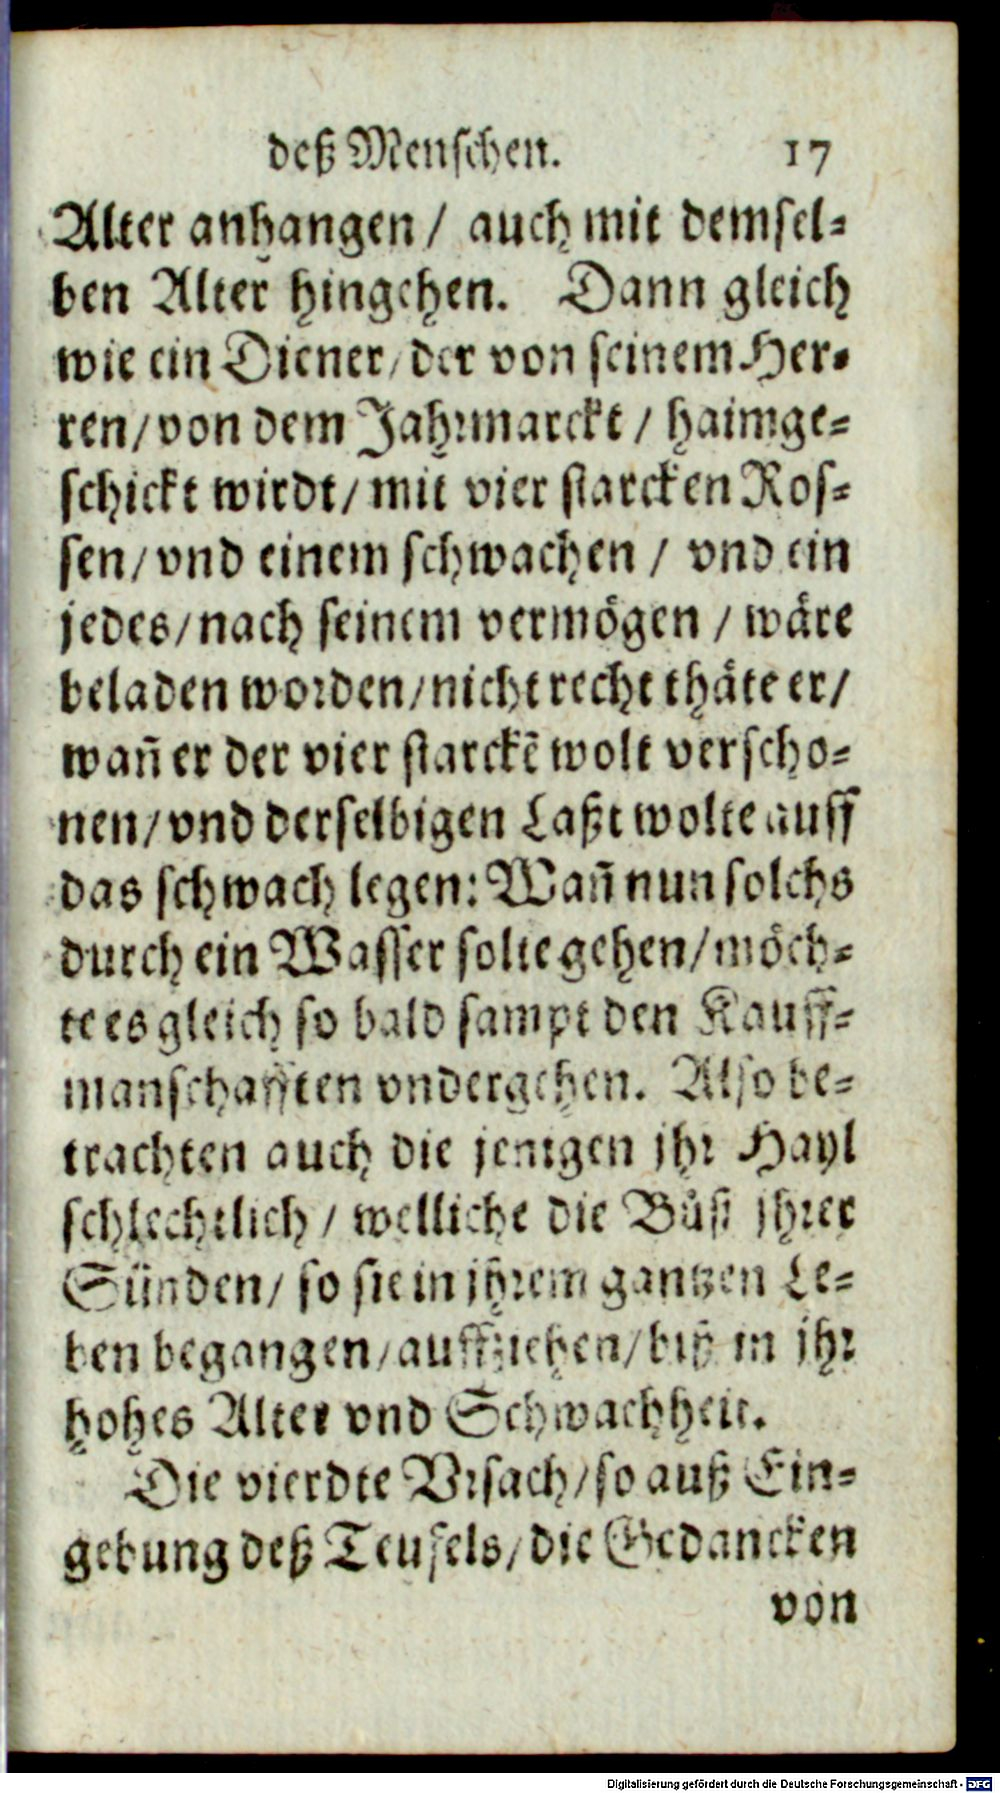 deß Menschen. 17
Alter anhangen / auch mit demsel-
ben Alter hingehen. Dann gleich
wie ein Diener / der von seinem Her-
ren / von dem Jahrmarckt / haimge-
schickt wirdt / mit vier starcken Ros-
sen / vnd einem schwachen / vnd ein
jedes / nach seinem vermögen / wäre
beladen worden / nicht recht thäte er /
wañ er der vier starckẽ wolt verscho-
nen / vnd derselbigen Laßt wolte auff
das schwach legen: Wañ nun solchs
durch ein Wasser solte gehen / möch-
te es gleich so bald sampt den Kauff-
manschafften vndergehen. Also be-
trachten auch die jenigen jhr Hayl
schlechtlich / welliche die Bůß jhrer
Sünden / so sie in jhrem gantzen Le-
ben begangen / auffziehen / biß in jhr
hohes Alter vnd Schwachheit.
Die vierdte Vrsach / so auß Ein-
gebung deß Teufels / die Gedancken
von
Digitalisierung gefördert durch die Deutsche Forschungsgemeinschaft - DFG